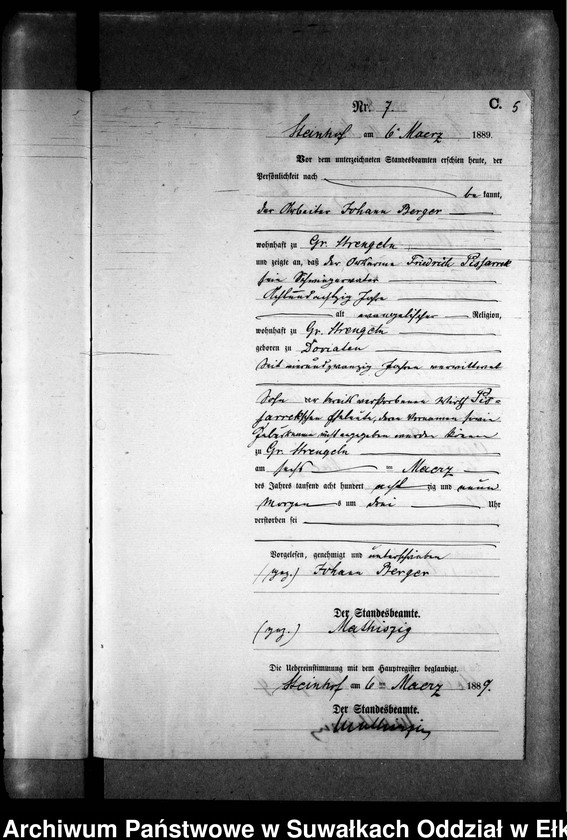 Nr. 7. C. 5
Steinhof am 6ⁿ Maerz 1889.
Vor dem unterzeichneten Standesbeamten erschien heute, der
Persönlichkeit nach
be kannt,
der Arbeiter Johann Berger
wohnhaft zu Gr. Strengeln
und zeigte an, daß der Ortsarme Friedrich Pissarrek
sein Schwiegervater
Achtundachtzig Jahre
alt evangelischer Religion,
wohnhaft zu Gr. Strengeln
geboren zu Doviaten
seit vierundzwanzig Jahren verwittwet
Sohn der bereits verstorbenen Wirth Pis-
sarrekschen Eheleute, deren Vornamen sowie
nicht angegeben werden können
zu Gr. Strengeln
am sechs ten Maerz
des Jahres tausend acht hundert acht zig und neun
Morgen s um drei Uhr
verstorben sei
Vorgelesen, genehmigt und unterschrieben
(gez.) Johann Berger
Der Standesbeamte.
(gez.) Mathiszig
Die Uebereinstimmung mit dem Hauptregister beglaubigt.
Steinhof am 6 ten Maerz 1889.
Der Standesbeamte.
Mathiszig
Archiwum Państwowe w Suwałkach Oddział w Ełk